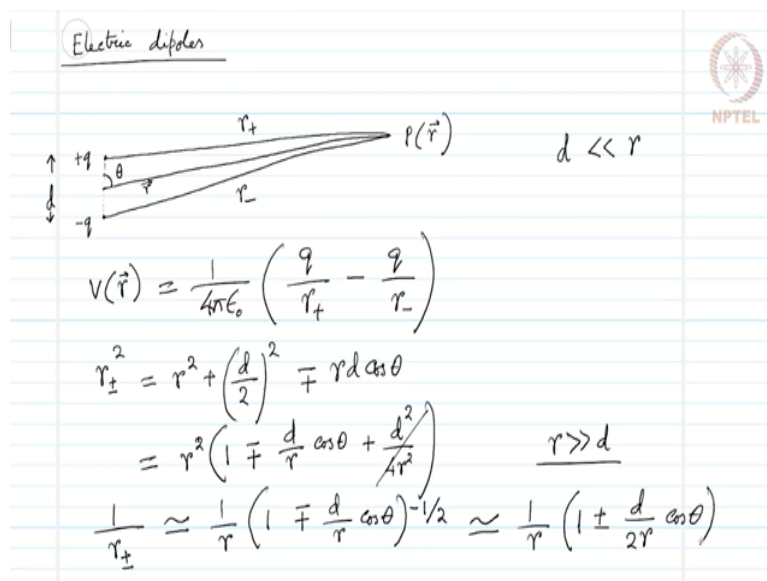 Electric dipoles
NPTEL
r₊
P(r⃗)
d << r
+q
θ
d
r⃗
r₋
-q
V(r⃗) = 1/4πϵ₀ ( q/r₊ − q/r₋ )
r±² = r² + (d/2)² ∓ rd cosθ
= r² ( 1 ∓ d/r cosθ + d²/4r² )
r>>d
1/r± ≃ 1/r ( 1 ∓ d/r cosθ )^-1/2 ≃ 1/r ( 1 ± d/2r cosθ )